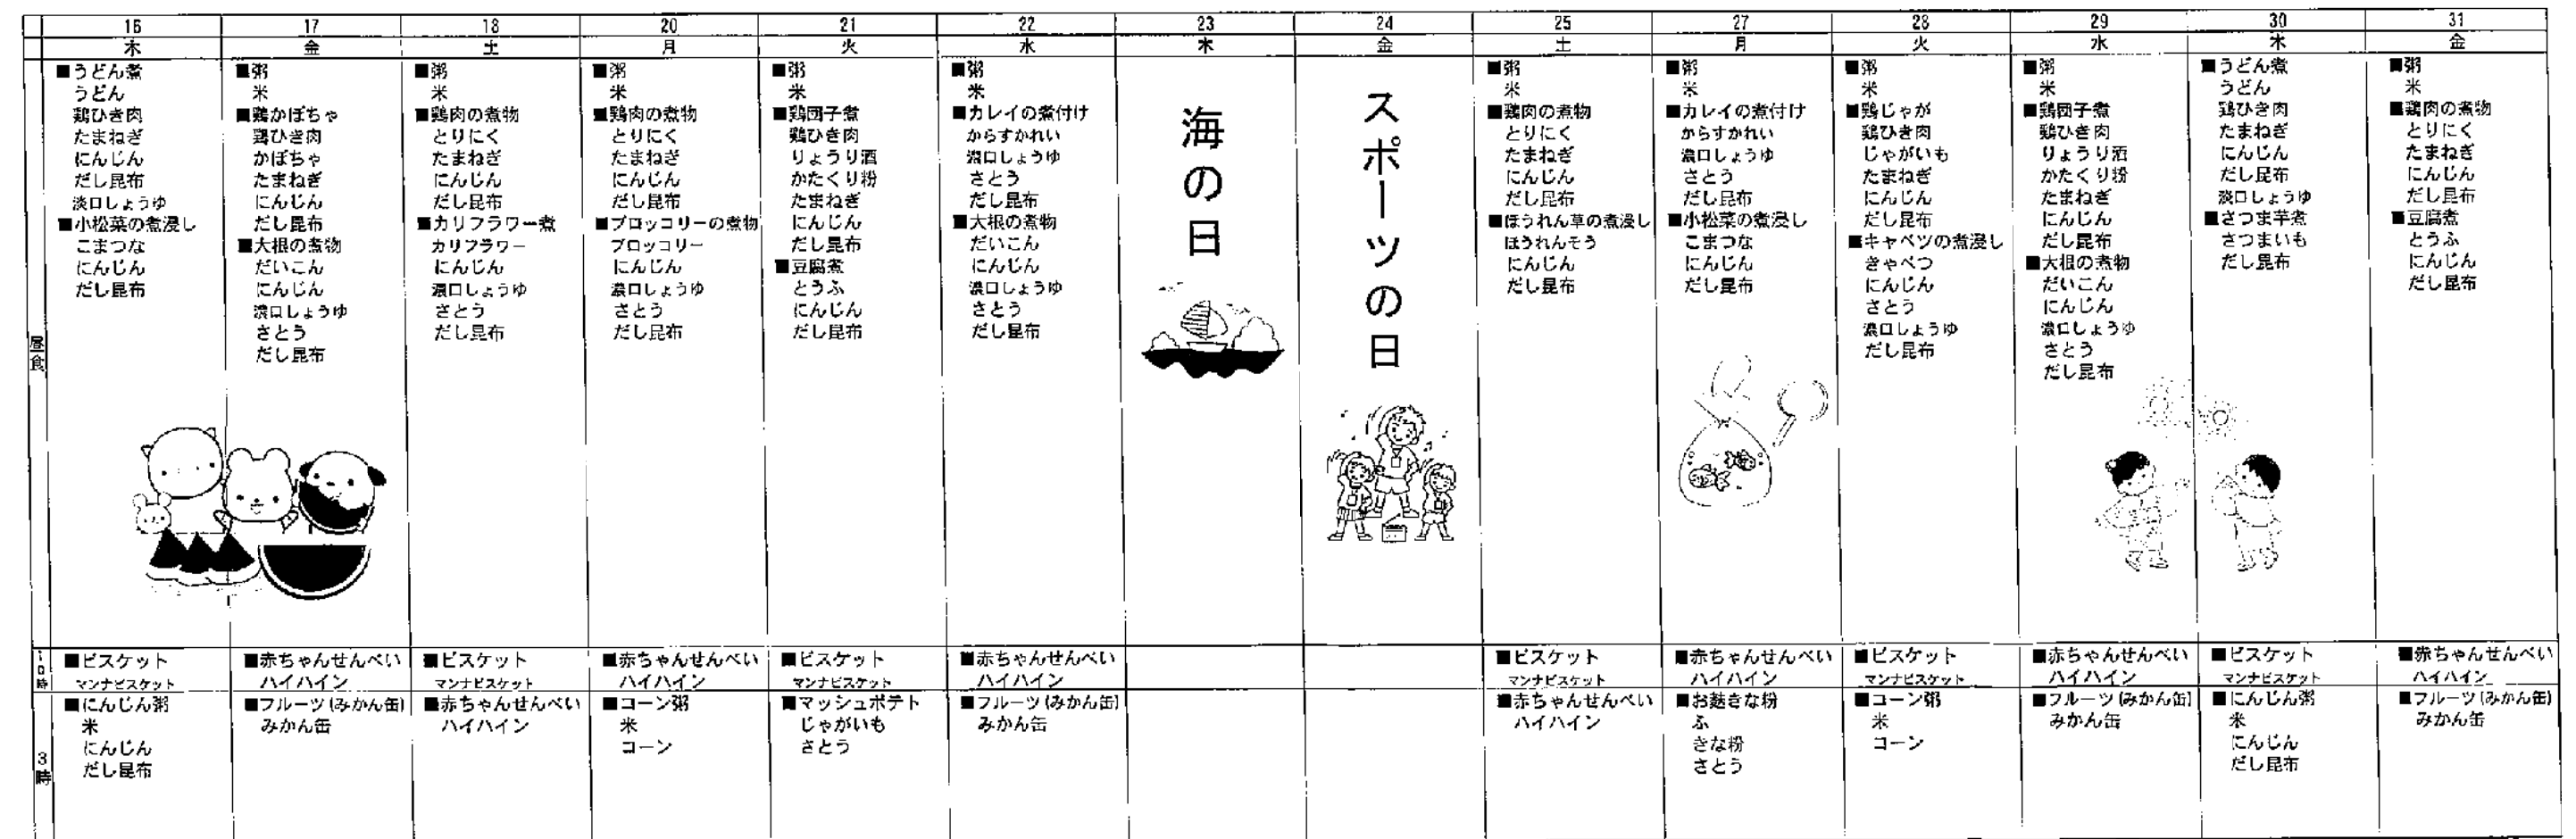 16
木
■うどん煮
うどん
鶏ひき肉
たまねぎ
にんじん
だし昆布
淡口しょうゆ
■小松菜の煮浸し
こまつな
にんじん
だし昆布
17
金
■粥
米
■鶏かぼちゃ
鶏ひき肉
かぼちゃ
たまねぎ
にんじん
だし昆布
■大根の煮物
だいこん
にんじん
濃口しょうゆ
さとう
だし昆布
18
土
■粥
米
■鶏肉の煮物
とりにく
たまねぎ
にんじん
だし昆布
■カリフラワー煮
カリフラワー
にんじん
濃口しょうゆ
さとう
だし昆布
20
月
■粥
米
■鶏肉の煮物
とりにく
たまねぎ
にんじん
だし昆布
■ブロッコリーの煮物
ブロッコリー
にんじん
濃口しょうゆ
さとう
だし昆布
21
火
■粥
米
■鶏団子煮
鶏ひき肉
りょうり酒
かたくり粉
たまねぎ
にんじん
だし昆布
■豆腐煮
とうふ
にんじん
だし昆布
22
水
■粥
米
■カレイの煮付け
からすかれい
濃口しょうゆ
さとう
だし昆布
■大根の煮物
だいこん
にんじん
濃口しょうゆ
さとう
だし昆布
23
木
海の日
24
金
スポーツの日
25
土
■粥
米
■鶏肉の煮物
とりにく
たまねぎ
にんじん
だし昆布
■ほうれん草の煮浸し
ほうれんそう
にんじん
だし昆布
27
月
■粥
米
■カレイの煮付け
からすかれい
濃口しょうゆ
さとう
だし昆布
■小松菜の煮浸し
こまつな
にんじん
だし昆布
28
火
■粥
米
■鶏じゃが
鶏ひき肉
じゃがいも
たまねぎ
にんじん
だし昆布
■キャベツの煮浸し
きゃべつ
にんじん
さとう
濃口しょうゆ
だし昆布
29
水
■粥
米
■鶏団子煮
鶏ひき肉
りょうり酒
かたくり粉
たまねぎ
にんじん
だし昆布
■大根の煮物
だいこん
にんじん
濃口しょうゆ
さとう
だし昆布
30
木
■うどん煮
うどん
鶏ひき肉
たまねぎ
にんじん
だし昆布
淡口しょうゆ
■さつま芋煮
さつまいも
だし昆布
31
金
■粥
米
■鶏肉の煮物
とりにく
たまねぎ
にんじん
だし昆布
■豆腐煮
とうふ
にんじん
だし昆布
昼食
10時
■ビスケット
マンナビスケット
■赤ちゃんせんべい
ハイハイン
■ビスケット
マンナビスケット
■赤ちゃんせんべい
ハイハイン
■ビスケット
マンナビスケット
■赤ちゃんせんべい
ハイハイン
■ビスケット
マンナビスケット
■赤ちゃんせんべい
ハイハイン
■ビスケット
マンナビスケット
■赤ちゃんせんべい
ハイハイン
■ビスケット
マンナビスケット
■赤ちゃんせんべい
ハイハイン
3時
■にんじん粥
米
にんじん
だし昆布
■フルーツ(みかん缶)
みかん缶
■赤ちゃんせんべい
ハイハイン
■コーン粥
米
コーン
■マッシュポテト
じゃがいも
さとう
■フルーツ(みかん缶)
みかん缶
■赤ちゃんせんべい
ハイハイン
■お麩きな粉
ふ
きな粉
さとう
■コーン粥
米
コーン
■フルーツ(みかん缶)
みかん缶
■にんじん粥
米
にんじん
だし昆布
■フルーツ(みかん缶)
みかん缶